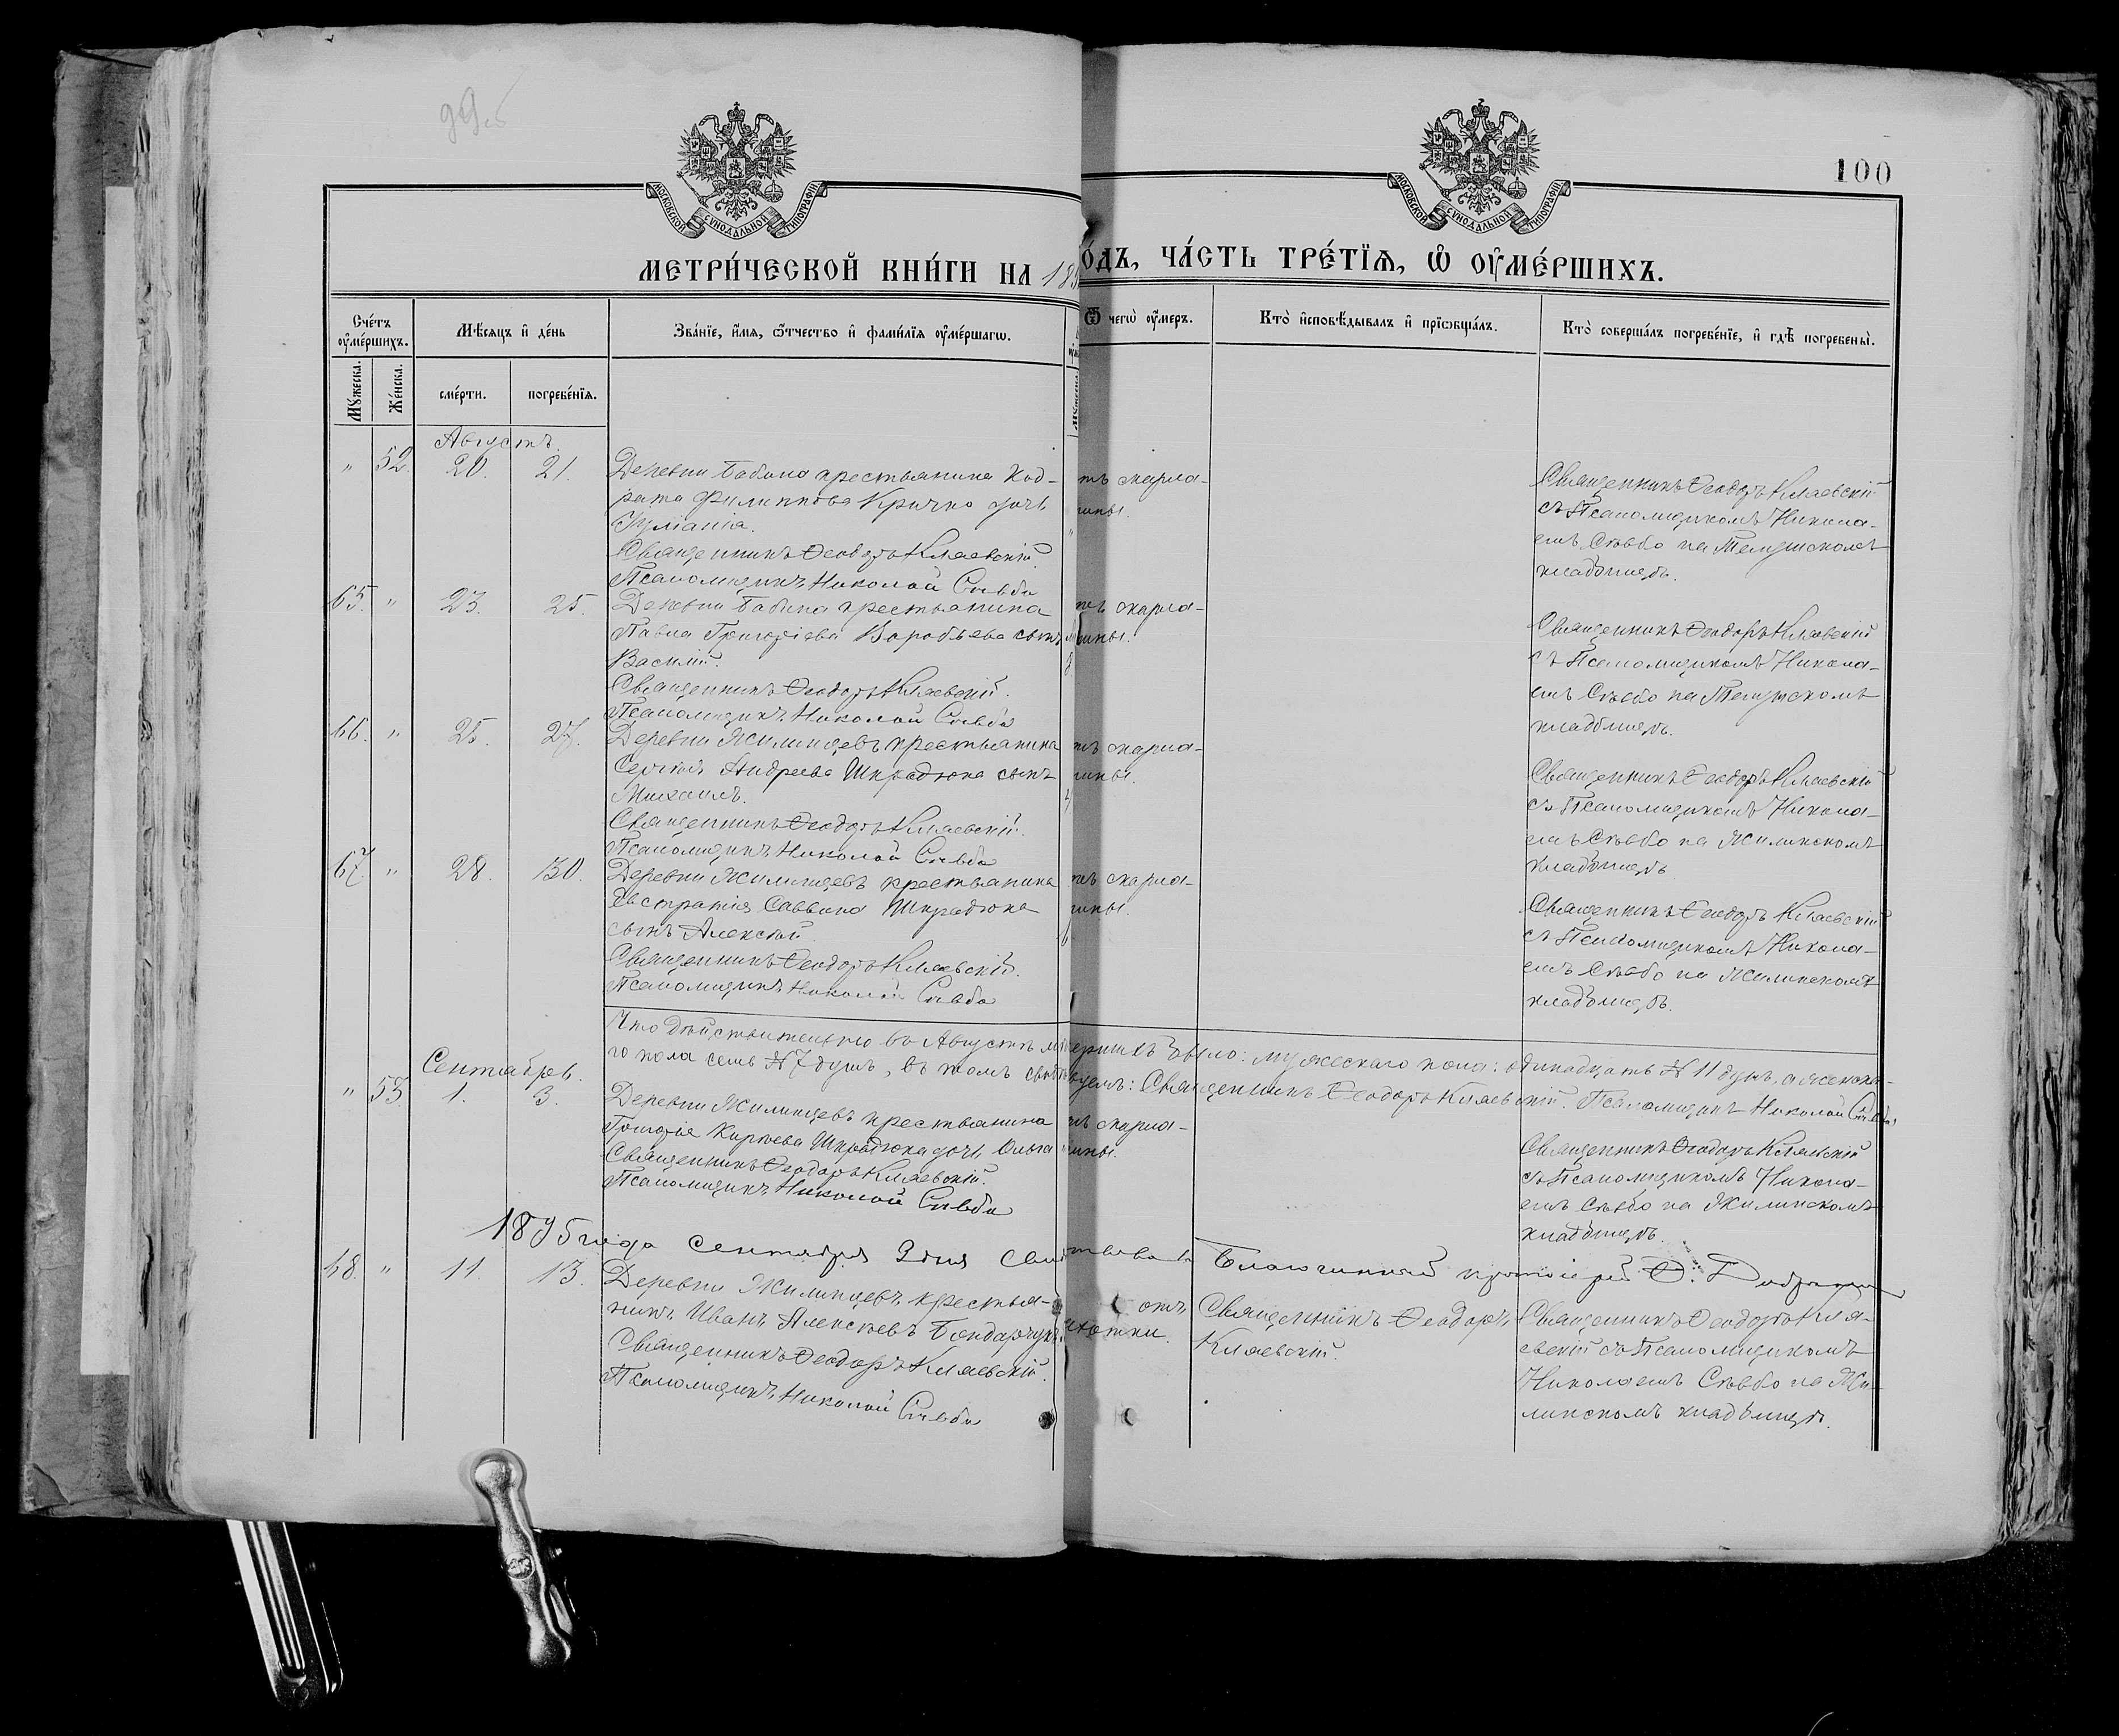 99об
МОСКОВСКОЙ СУНОДАЛЬНОЙ ТИПОГРАФІИ
МОСКОВСКОЙ СУНОДАЛЬНОЙ ТИПОГРАФІИ
100
МЕТРИ́ЧЕСКОЙ КНИ́ГИ НА 189
О́ДЪ, ЧА́СТЬ ТРЕ́ТЇѦ, Ѽ ОУ҆МЕ́РШИХЪ.
Сче́тъ оу҆ме́ршихъ.
Мѣ́сяцъ и҆ де́нь
Зва́нїе, и҆́мя, ѻ҆́тчество и҆ фами́лїя оу҆ме́ршагѡ.
Ѿ чегѡ̀ оу҆́меръ.
Кто̀ и҆сповѣ́дывалъ и҆ прїѡбща́лъ.
Кто̀ соверша́лъ погребе́нїе, и҆ гдѣ̀ погребены̀.
Мꙋ́жеска.
Же́нска.
сме́рти.
погребе́нїя.
Августъ.
" 52. 20. 21. Деревни Бабина крестьянина Код-
рата Филиппова Кричко дочь
Іуліанія.
Священникъ Ѳеодоръ Кляевскій.
Псаломщикъ Николай Сѣвбо
тъ скарла-
тины.
Священникъ Ѳеодоръ Кляевскій
съ Псаломщикомъ Никола-
емъ Сѣвбо на
кладбищѣ.
65. " 23. 25. Деревни Бабина крестьянина
Павла Григоріева Воробьева сынъ
Василій.
Священникъ Ѳеодоръ Кляевскій.
Псаломщикъ Николай Сѣвбо
тъ скарла-
тины.
Священникъ Ѳеодоръ Кляевскій
съ Псаломщикомъ Никола-
емъ Сѣвбо на
кладбищѣ.
66. " 25. 27. Деревни Жилинцевъ крестьянина
Сергія Андреева Шкрадюка сынъ
Михаилъ.
Священникъ Ѳеодоръ Кляевскій.
Псаломщикъ Николай Сѣвбо
тъ скарла-
тины.
Священникъ Ѳеодоръ Кляевскій
съ Псаломщикомъ Никола-
емъ Сѣвбо на Жилинскомъ
кладбищѣ
67. " 28. 30. Деревни Жилинцевъ крестьянина
Евстратія Саввина Шкрадюка
сынъ Алексѣй
Священникъ Ѳеодоръ Кляевскій.
Псаломщикъ Николай Сѣвбо
тъ скарла-
тины.
Священникъ Ѳеодоръ Кляевскій
съ Псаломщикомъ Никола-
емъ Сѣвбо на Жилинскомъ
кладбищѣ.
Что дѣйствительно въ Августѣ мѣ умершихъ было: мужескаго пола: одинадцать № 11 душъ, а женска-
го пола семь № 7 душъ, въ томъ свидѣ вуемъ: Священникъ Ѳеодоръ Кляевскій. Псаломщикъ Николай Сѣвбо
Сентябрь.
" 53. 1. 3. Деревни Жилинцевъ крестьянина
Григорія Карпова Шкрадюка дочь Ольга
Священникъ Ѳеодоръ Кляевскій.
Псаломщикъ Николай Сѣвбо
тъ скарла-
тины.
Священникъ Ѳеодоръ Кляевскій
съ Псаломщикомъ Никола-
емъ Сѣвбо на Жилинскомъ
кладбищѣ.
1895 года Сентября 9 дня Благочинный протоіерей Ѳ.
68. " 11. 13. Деревни Жилинцевъ крестья-
нинъ Иванъ Алексѣевъ Бондарчукъ
Священникъ Ѳеодоръ Кляевскій.
Псаломщикъ Николай Сѣвбо
отъ
чахотки.
Священникъ Ѳеодоръ
Кляевскій.
Священникъ Ѳеодоръ Кля-
евскій съ Псаломщикомъ
Николаемъ Сѣвбо на Жи-
линскомъ кладбищѣ.